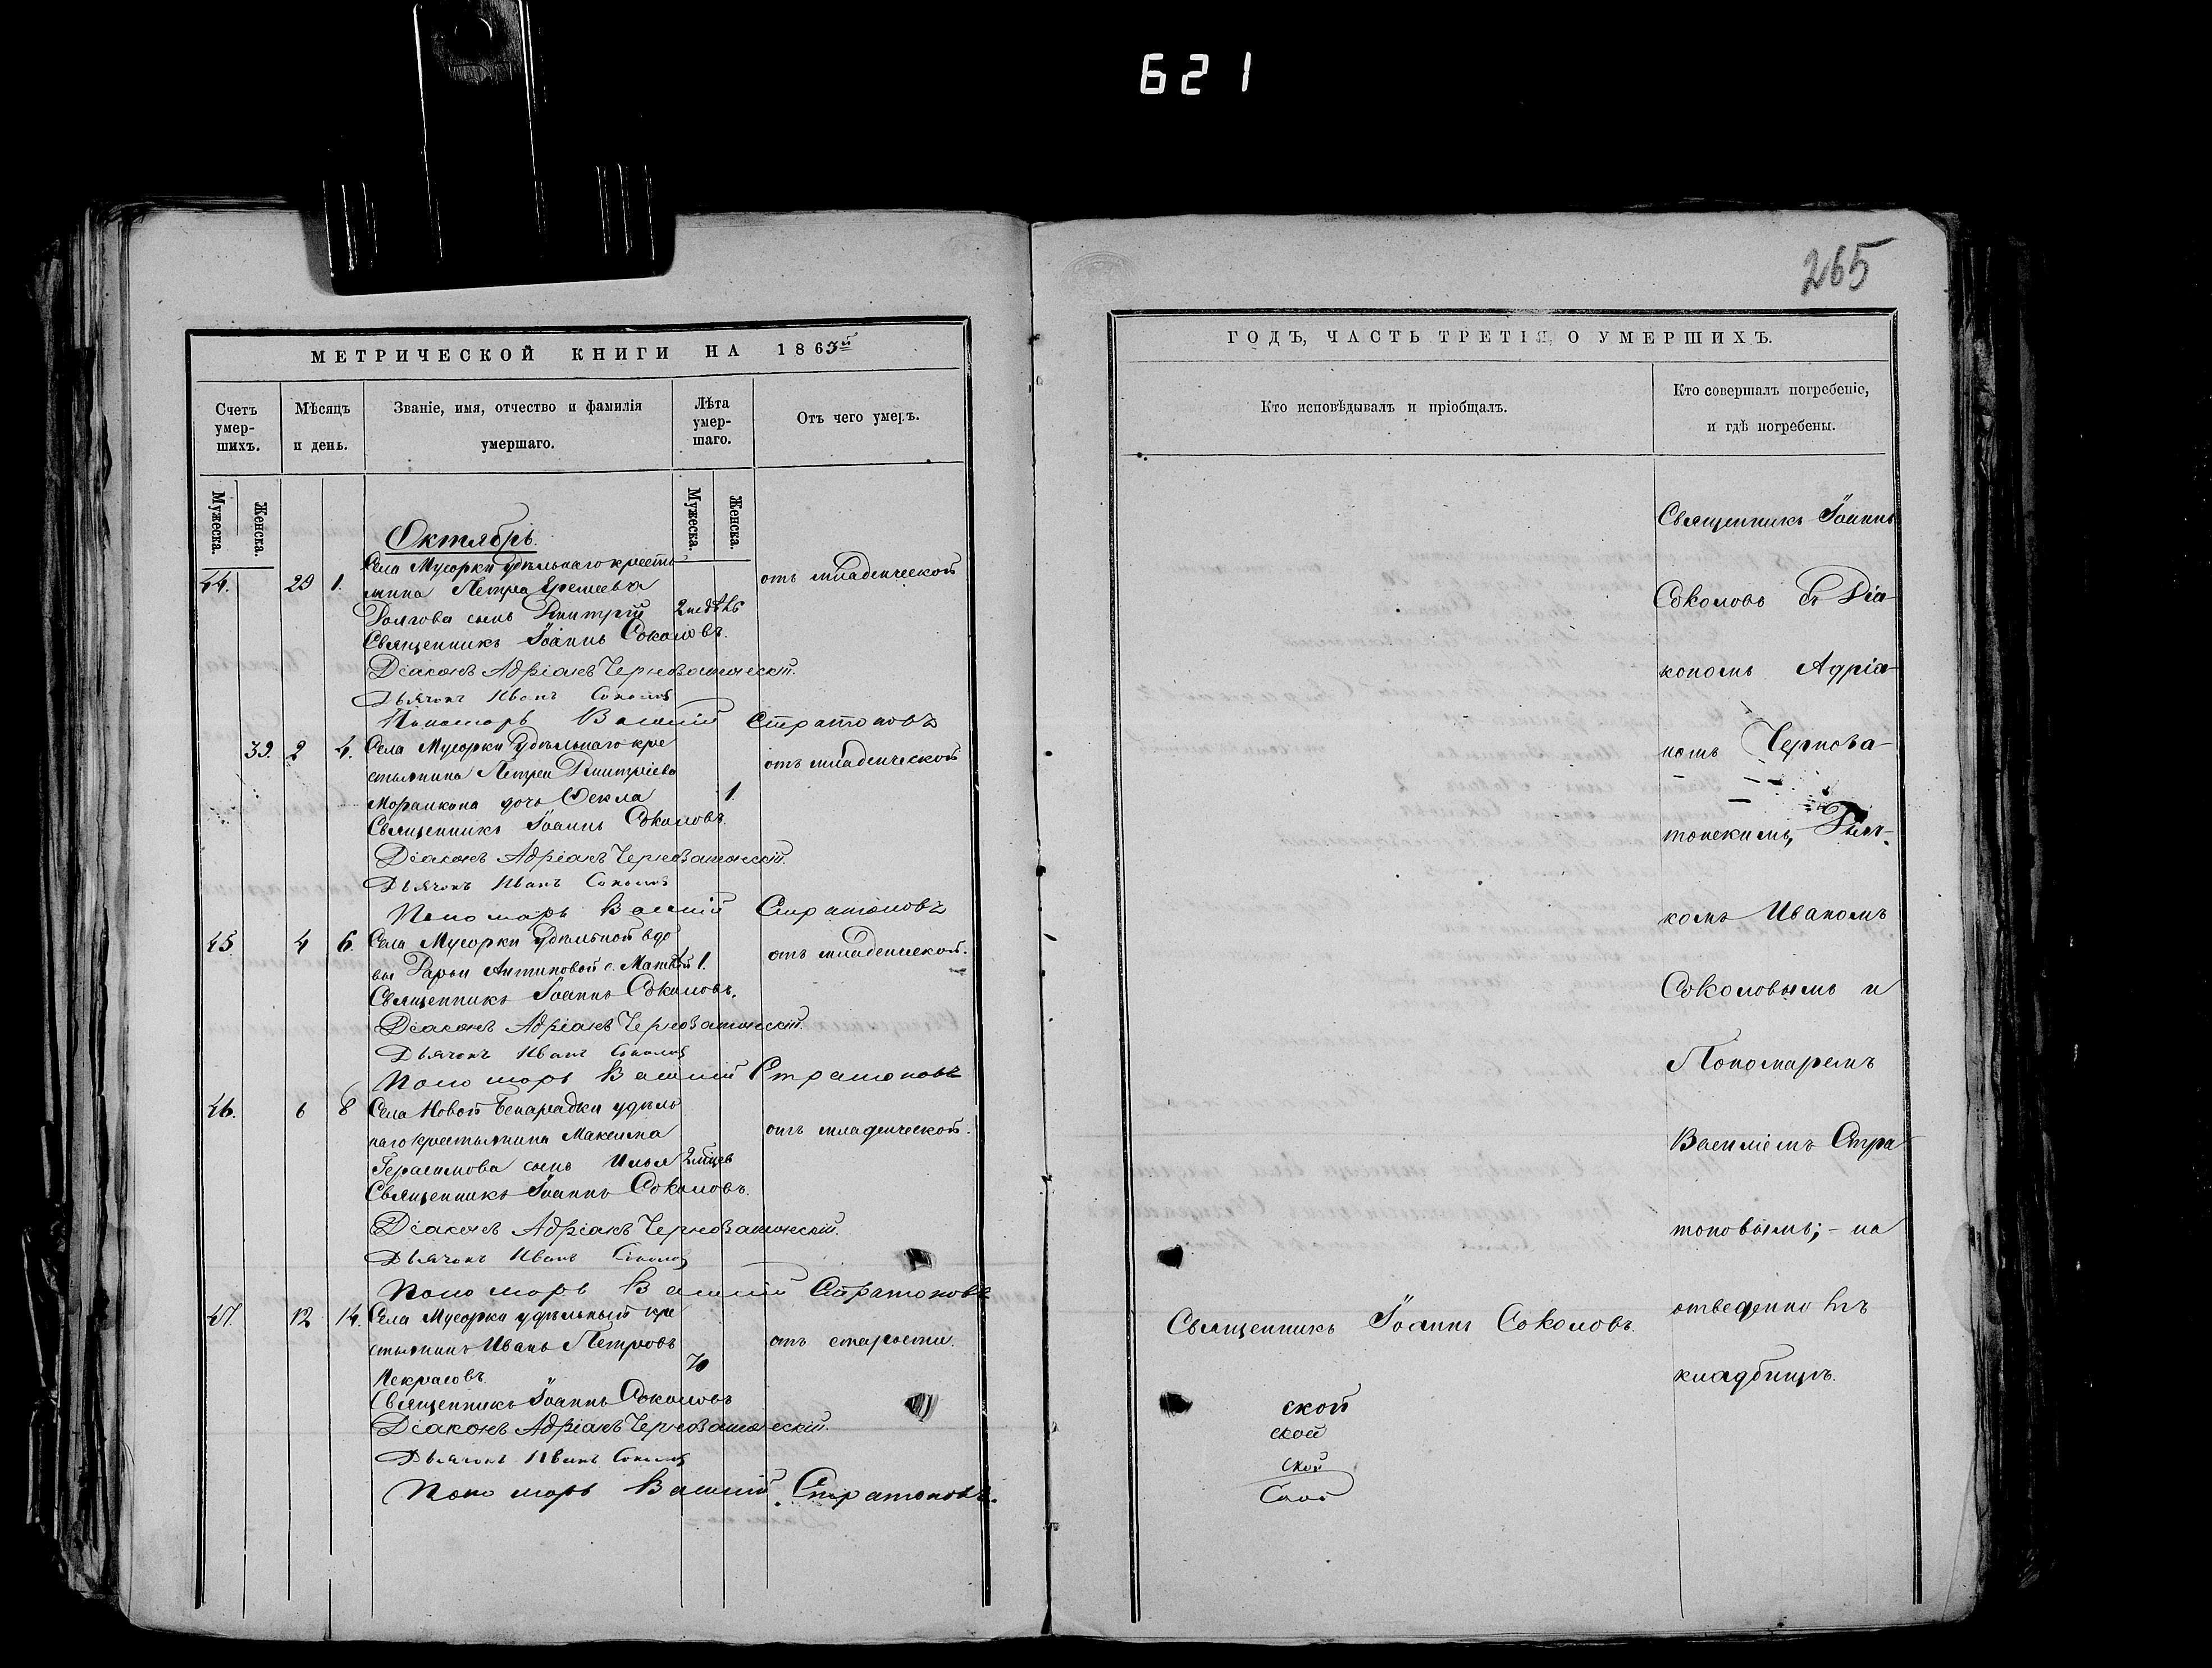 621
265
МЕТРИЧЕСКОЙ КНИГИ НА 1863й
Счетъ умер-шихъ.
Мѣсяцъ и день.
Званіе, имя, отчество и фамилія умершаго.
Лѣта умер-шаго.
Отъ чего умеръ.
Мужеска.
Женска.
Мужеска.
Женска.
Октябрь.
44. 29 1. Села Мусорки удѣльнаго крестья
нина Петра Еремеева отъ младенческой
Долгова сынъ Димитрій 2 недѣль
Священникъ Іоаннъ Соколовъ.
Діаконъ Адріанъ Черноватонскій.
Дьячокъ Иванъ Соколовъ
Пономарь Василій Стратоновъ
39. 2 4. Села Мусорки Удѣльнаго кре
стьянина Петра Димитріева отъ младенческой
дочь Ѳекла 1.
Священникъ Іоаннъ Соколовъ.
Діаконъ Адріанъ Черноватонскій.
Дьячокъ Иванъ Соколовъ
Пономарь Василій Стратоновъ
45. 4 6. Села Мусорки Удѣльной вдо
вы Дарьи Антиповой с. Матвѣй 1. отъ младенческой.
Священникъ Іоаннъ Соколовъ.
Діаконъ Адріанъ Черноватонскій.
Дьячокъ Иванъ Соколовъ
Пономарь Василій Стратоновъ
46. 6 8 Села Новой Бинарадки удѣль
наго крестьянина Максима отъ младенческой.
Герасимова сынъ Илья 2 мѣсев
Священникъ Іоаннъ Соколовъ.
Діаконъ Адріанъ Черноватонскій.
Дьячокъ Иванъ Соколовъ
Пономарь Василій Стратоновъ
47. 12 14. Села Мусорки удѣльный кре
стьянинъ Иванъ Петровъ отъ старости.
Некрасовъ 70
Священникъ Іоаннъ Соколовъ
Діаконъ Адріанъ Черноватонскій.
Дьячокъ Иванъ Соколовъ
Пономарь Василій Стратоновъ.
ГОДЪ, ЧАСТЬ ТРЕТІЯ, О УМЕРШИХЪ.
Кто исповѣдывалъ и пріобщалъ.
Кто совершалъ погребеніе, и гдѣ погребены.
Священникъ Іоаннъ
Соколовъ съ Діа-
кономъ Адріа-
номъ Чернова-
тонскимъ, Дьяч-
комъ Иваномъ
Соколовымъ и
Пономаремъ
Василіемъ Стра
тоновымъ; - на
отведенномъ
кладбищѣ.
Священникъ Іоаннъ Соколовъ.
ской
ской
ской